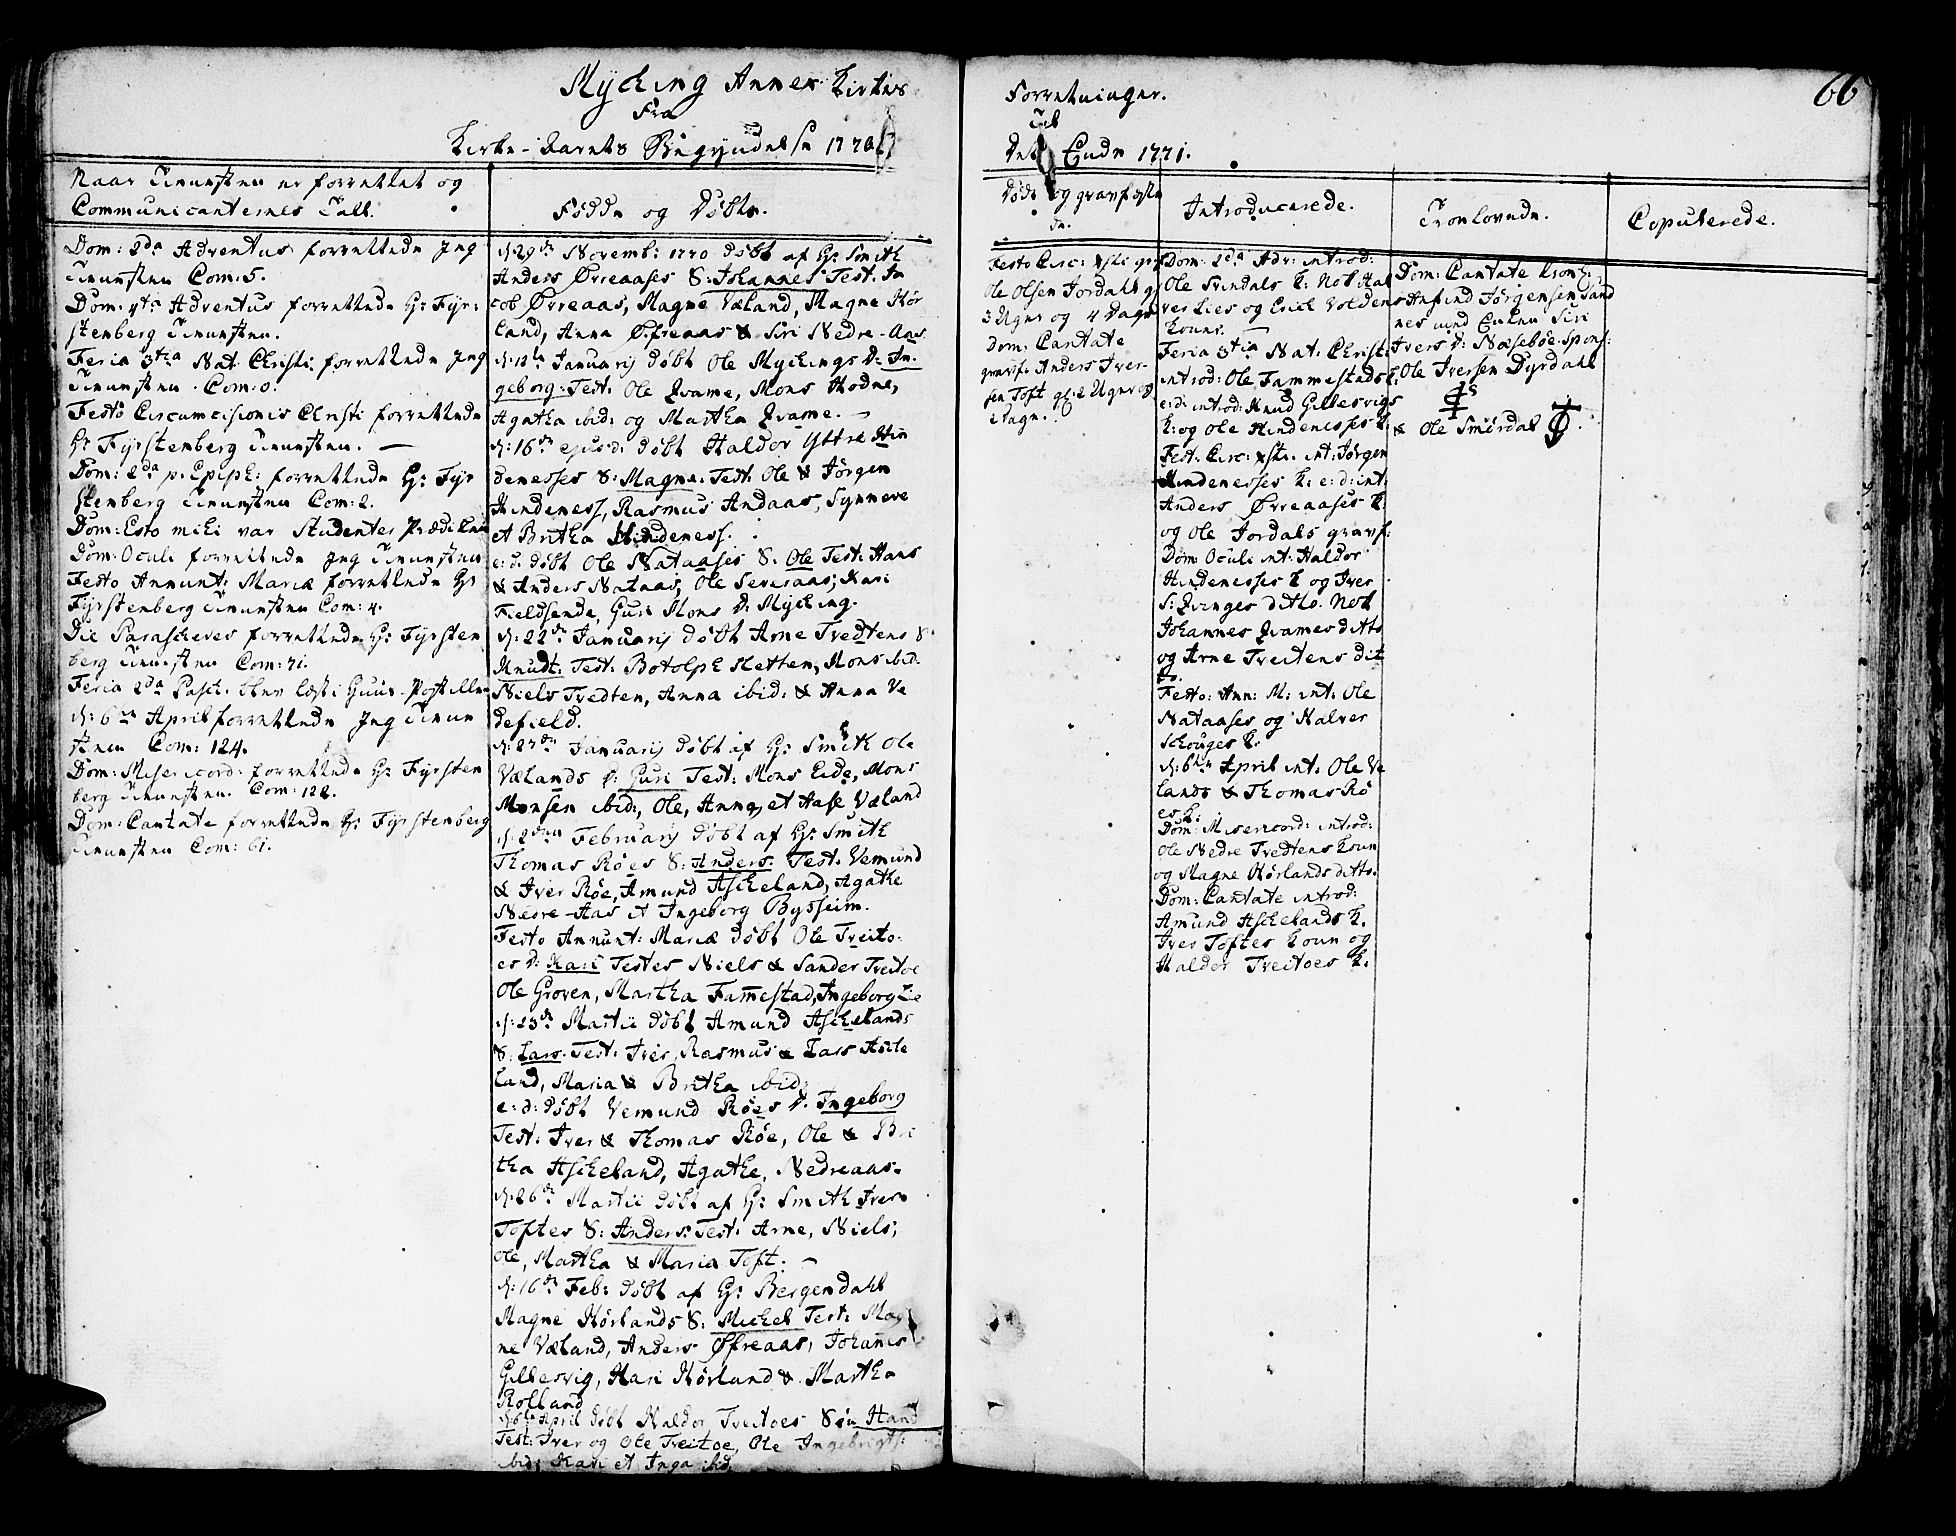 Mÿcking Annex Kirkes
Fra
Kirke-Aarets Begyndelse 1770
Naar Tienesten er forrettet og
Communicanternes Tall.
Fødde og Døbte.
Dom: 2da Adventus forrettede Jeg
Tienesten Com: 5.
Dom: 4ta Adventus forrettede Hr: Fyr-
stenberg Tienesten.
Feria 3tia Nat. Christi forrettede Jeg
Tienesten. Com: 0.
Festo Circumcisionis Christi forrettede
Hr Fyrstenberg Tienesten. —
Dom: 2da p. Epiph: forrettede Hr: Fyr
stenberg Tienesten Com: 2.
Dom: Esto mihi var Studenter Prædiken
Dom: Oculi forrettede Jeg Tienesten
Festo Annunt: Mariæ forrettede Hr
Fyrstenberg Tienesten Com: 4.
Die Parasceves forrettede Hr: Fyrsten
berg Tienesten Com: 71.
Feria 2da Pasch. blev læst i Huus-Postillen
d: 6te April forrettede Jeg Tiene
sten Com: 124.
Dom: Misericord: forrettede Hr Fyrsten
berg Tienesten. Com: 128.
Dom: Cantate forrettede Hr: Fyrstenberg
Tienesten Com: 61.
d: 29de Novemb: 1770 døbt af Hr: Smith
Anders Øvreaases S: Johannes Test. Ja
cob Øvreaas, Magne Væland, Magne Hør
land, Anna Øfreaas & Siri Nedre-Aas.
d: 12te Januarij døbt Ole Myckings D: In
geborg: Test: Ole Qvame, Mons Hodne,
Agatha ibid: og Martha Qvame. —
d: 16de ejusd: døbt Haldor Yttre Hin
denesses S: Magne. Test: Ole & Jörgen
Hindeness, Rasmus Andaas, Synneve
et Britha Hindeness.
e: d: døbt Ole Nataases S: Ole Test: Hans
& Anders Nataas, Ole Severaas, Kari
Fieldsende, Guri Mons D: Mycking.
d: 22de Januarij døbt Arne Tvedtens S
Knudt: Test: Botolph Sletten, Mons ibid:
Niels Tvedten, Anna ibid: & Anna Ve
defield.
d: 27de Januarij døbt af Hr: Smith Ole
Vælands D: Guri Test: Mons Eide, Mons
Monsen ibid:, Ole, Anna, et Aase Væland
d: 2den Februarij døbt af Hr: Smith
Thomas Röes S: Anders. Test. Vemund
& Iver Röe, Amund Ascheland, Agathe
Nedre-Aas et Ingeborg Bysseim.
Festo Annunt: Mariæ døbt Ole Tveito-
es D: Kari Testes Niels & Sander Tveitoe
Ole Groven, Martha Fam̅estad, Ingeborg Lie
d: 23de Martii døbt Amund Aschelands
S: Lars. Test: Iver, Rasmus & Lars Asche
land, Maria & Britha ibid:
e: d: døbt Vemund Röes D. Ingeborg
Test: Iver & Thomas Röe, Ole & Bri
tha Ascheland, Agathe, Nedreaas.
d: 26de Martii døbt af Hr: Smith Iver
Toftes S: Anders. Test: Arne, Niels,
Ole, Martha & Maria Toft. —
d: 16de Feb: døbt af Hr: Bergendahl
Magne Hörlands S: Michel Test: Mag
ne Væland, Anders Øfreaas, Johan̅es
Gillesvig, Kari Hörland & Martha
Rolland
d: 6te April døbt Haldor Tveitoes Søn Hand
Test: Iver og Ole Tveitoe, Ole Ingebrigts:
ibid: Kari et Inga ibid.
66
Forretninger.
Til
Dets Ende 1771.
Døde og gravfæste
Introducerede.
Troelovede.
Copulerede.
Festo Circ: Xsti gr:
Ole Olsen Jordahl gl:
3 Uger og 4 Dage
Dom: Cantate
gravf: Anders Iver-
sen Toft gl: 2 Uger og
1 Dagn.
Dom: 2da Adv: introd:
Ole Svendals K: Not Hal
ver Lies og Erich Voldens
Koner. —
Feria 3tia Nat. Christi
introd: Ole Fammestads K.
e: d: introd: Knud Gillesvigs
K: og Ole Hindenesses K.
Fest: Circ: Xsti. int: Jörgen
Hindenesses K: e: d: int:
Anders Øvreaases K.
og Ole Jordals gravf:
Dom: Oculi int: Haldor
Hindenesses K og Iver
S: Qvinges ditto. Not
Johannes Qvames ditto
og Arne Tveitens dit
to.
Festo: Ann: M: int: Ole
Nataases og Halver
Schouges K.
d: 6te April int: Ole Ve
lands & Thomas Rö
es K:
Dom: Misericord: introd:
Ole Nedre Tvedtens Kone
og Magne Hörlands ditto.
Dom: Cantate introd:
Amund Aschelands K.
Iver Toftes Kone og
Haldor Tveitoes K.
Dom: Cantate
Anfind Jörgensen Sand
nes med Enken Siri
Ivers D: Næsebøe. Spons:
Ole Iversen Dyrdahl
& Ole Smördal